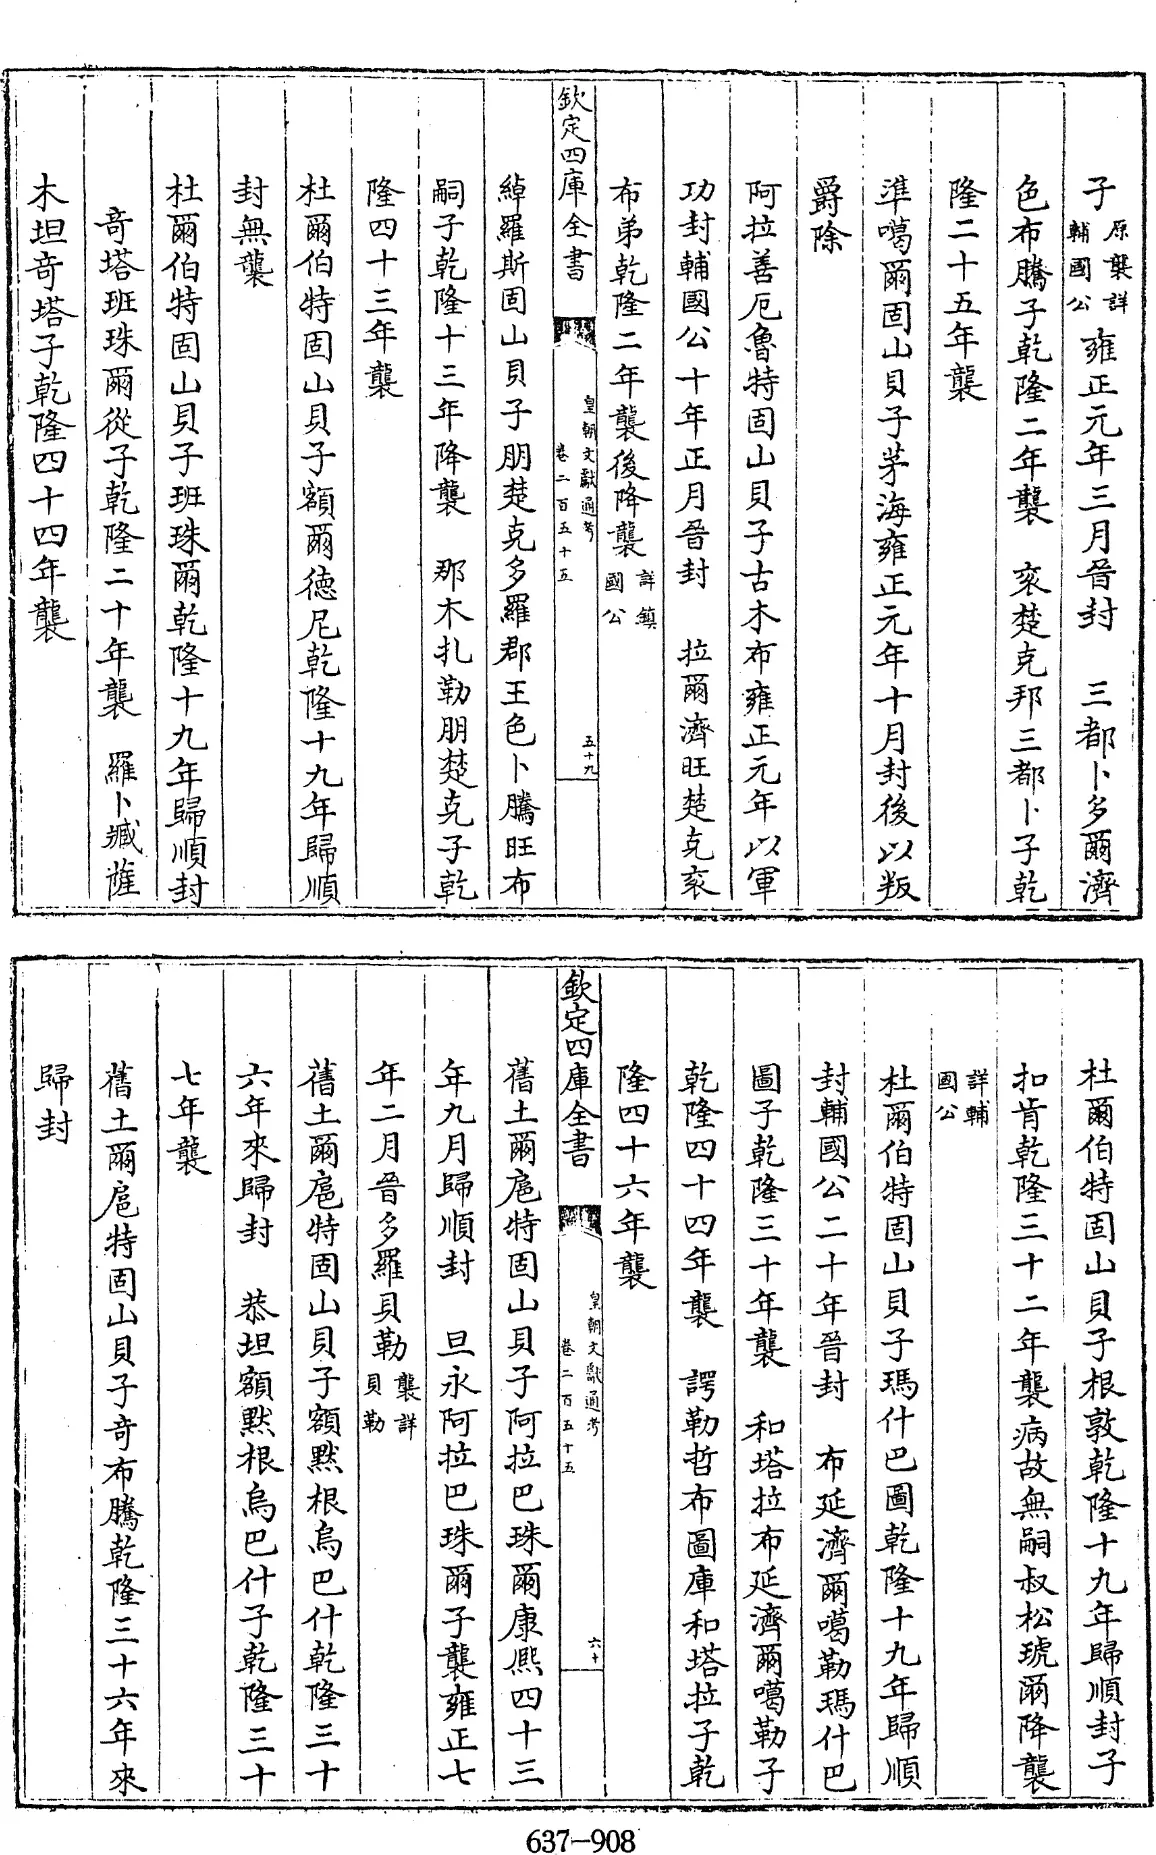 子原襲詳輔國公雍正元年三月晉封　三都卜多爾濟
色布騰子乾隆二年襲　袞楚克邦三都卜子乾
隆二十五年襲
準噶爾固山貝子茅海雍正元年十月封後以叛
爵除
阿拉善厄魯特固山貝子古木布雍正元年以軍
功封輔國公十年正月晉封　拉爾濟旺楚克袞
布弟乾隆二年襲後降襲詳鎮國公
欽定四庫全書
皇朝文獻通考
卷二百五十五
五十九
綽羅斯固山貝子朋楚克多羅郡王色卜騰旺布
嗣子乾隆十三年降襲　那木扎勒朋楚克子乾
隆四十三年襲
杜爾伯特固山貝子額爾德尼乾隆十九年歸順
封無襲
杜爾伯特固山貝子班珠爾乾隆十九年歸順封
奇塔班珠爾從子乾隆二十年襲　羅卜臧薩
木坦奇塔子乾隆四十四年襲
杜爾伯特固山貝子根敦乾隆十九年歸順封子
扣肯乾隆三十二年襲病故無嗣叔松琥爾降襲
詳輔國公
杜爾伯特固山貝子瑪什巴圖乾隆十九年歸順
封輔國公二十年晉封　布延濟爾噶勒瑪什巴
圖子乾隆三十年襲　和塔拉布延濟爾噶勒子
乾隆四十四年襲　諤勒哲布圖庫和塔拉子乾
隆四十六年襲
欽定四庫全書
皇朝文獻通考
卷二百五十五
六十
舊土爾扈特固山貝子阿拉巴珠爾康熙四十三
年九月歸順封　旦永阿拉巴珠爾子襲雍正七
年二月晉多羅貝勒襲詳貝勒
舊土爾扈特固山貝子額黙根烏巴什乾隆三十
六年來歸封　恭坦額黙根烏巴什子乾隆三十
七年襲
舊土爾扈特固山貝子奇布騰乾隆三十六年來
歸封
637-908